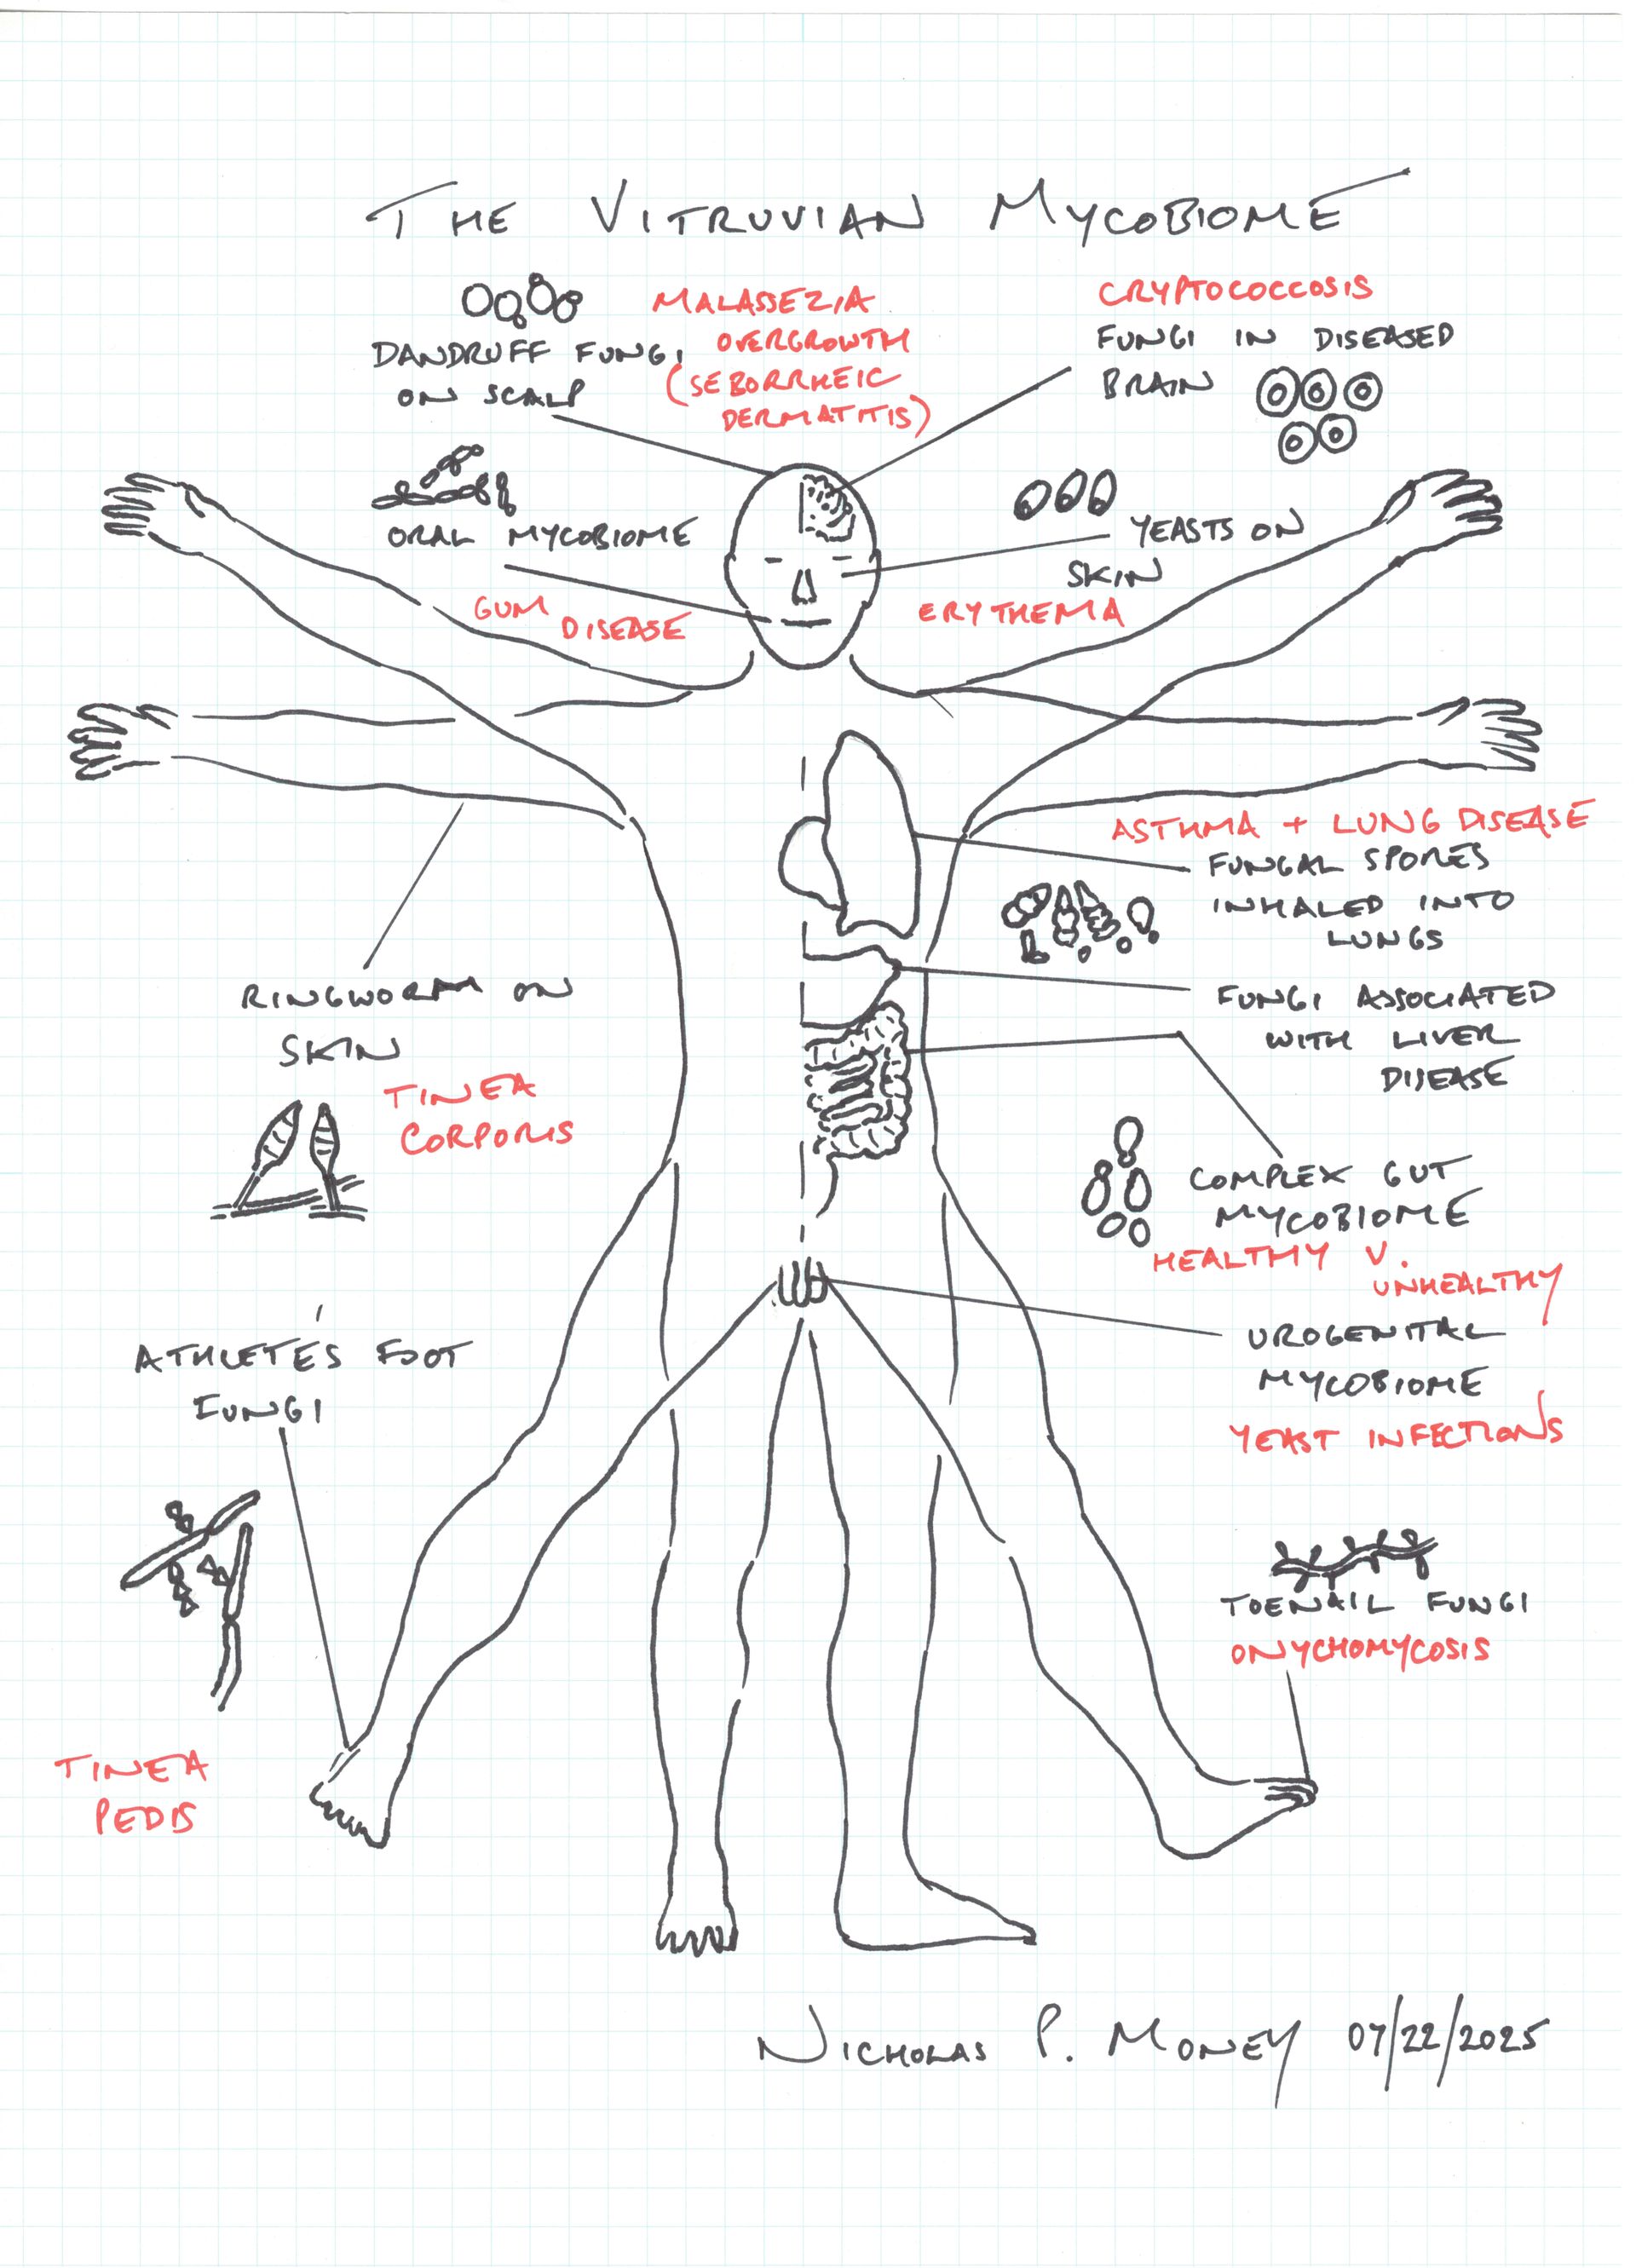 THE VITRUVIAN MYCOBIOME
DANDRUFF FUNGI
ON SCALP
MALASSEZIA
OVERGROWTH
(SEBORRHEIC
DERMATITIS)
CRYPTOCOCCOSIS
FUNGI IN DISEASED
BRAIN
ORAL MYCOBIOME
GUM
DISEASE
YEASTS ON
SKIN
ERYTHEMA
ASTHMA + LUNG DISEASE
FUNGAL SPORES
INHALED INTO
LUNGS
RINGWORM ON
SKIN
TINEA
CORPORIS
FUNGI ASSOCIATED
WITH LIVER
DISEASE
COMPLEX GUT
MYCOBIOME
HEALTHY V.
UNHEALTHY
ATHLETE'S FOOT
FUNGI
UROGENITAL
MYCOBIOME
YEAST INFECTIONS
TOENAIL FUNGI
ONYCHOMYCOSIS
TINEA
PEDIS
NICHOLAS P. MONEY 07/22/2025